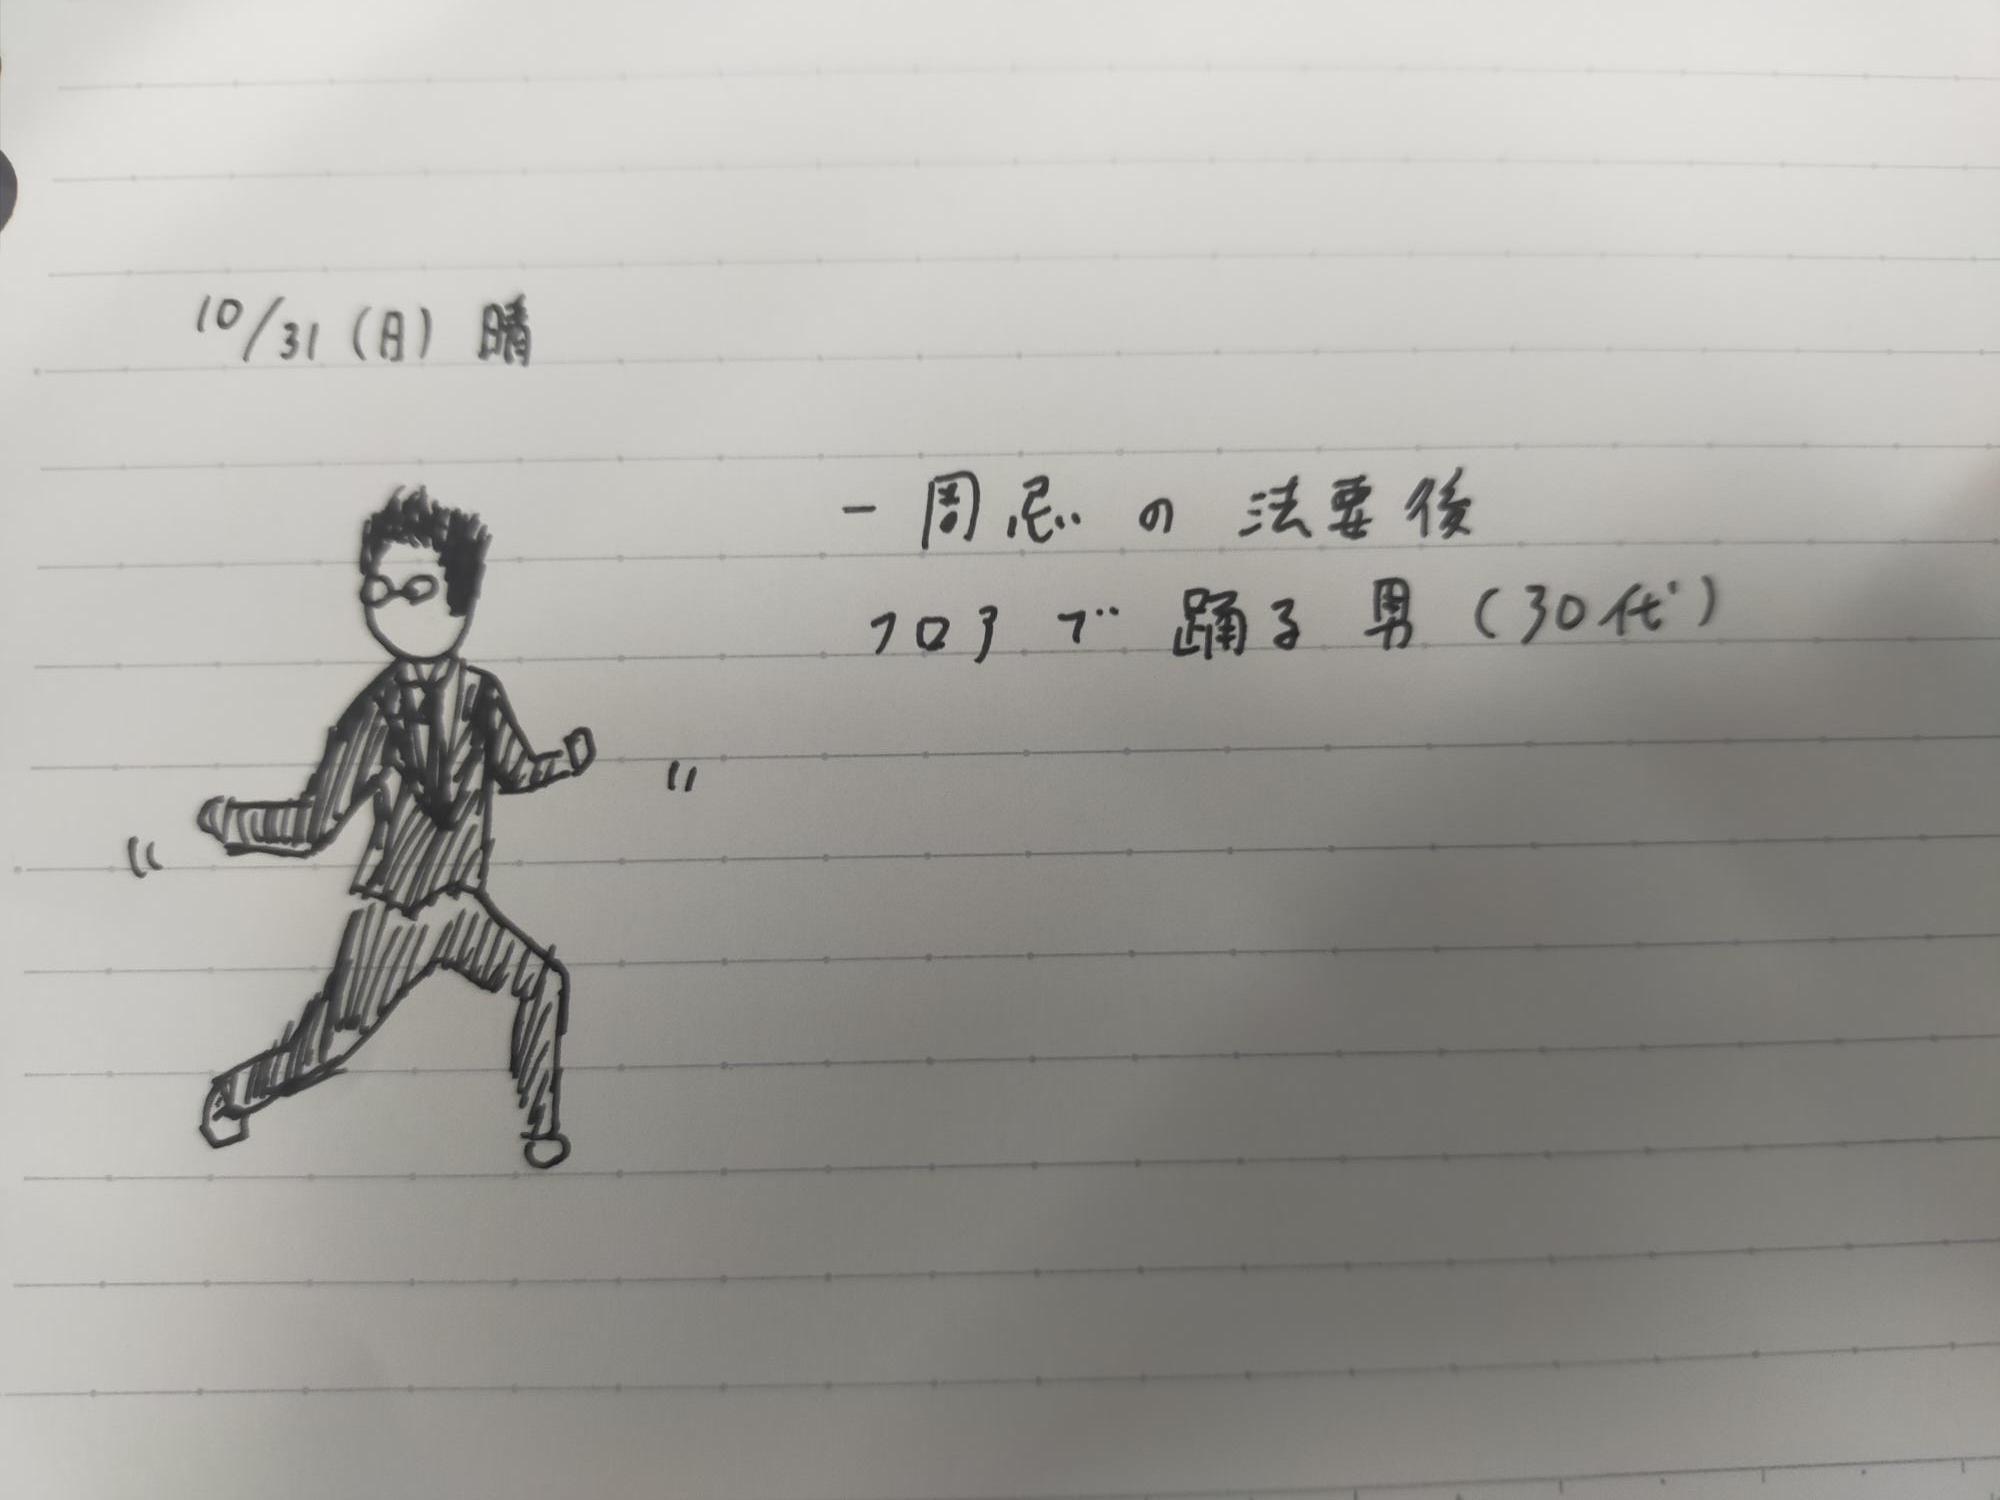 10/31(日) 晴
一周忌の法要後
フロアで踊る男(30代)